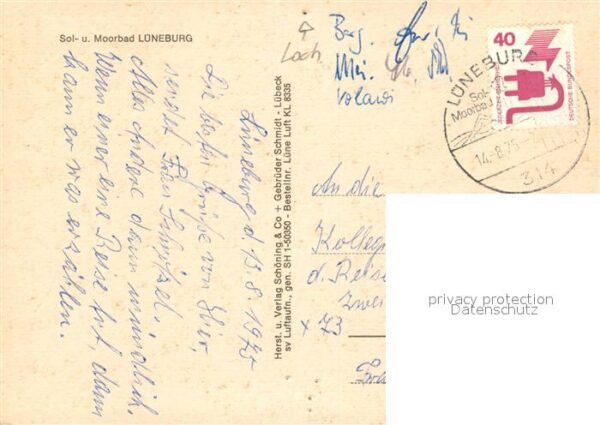 Sol- u. Moorbad LÜNEBURG
Lüneburg d. 13.8.1975
Die besten Grüße von hier
sendet Frau
Alles andere dann mündlich.
Wenn einer eine Reise tut, dann
kann er was erzählen.
Herst. u. Verlag Schöning & Co + Gebrüder Schmidt - Lübeck
sv Luftaufn., gen. SH 1-50350 - Bestellnr. Lüne Luft KL 8335
Loch
Bag.
40
DEUTSCHE BUNDESPOST
LÜNEBURG
Sol-
Moorba
14.-8.75
314
An die
Kolleg
d. Reise
zwei
x 73
privacy protection
Datenschutz